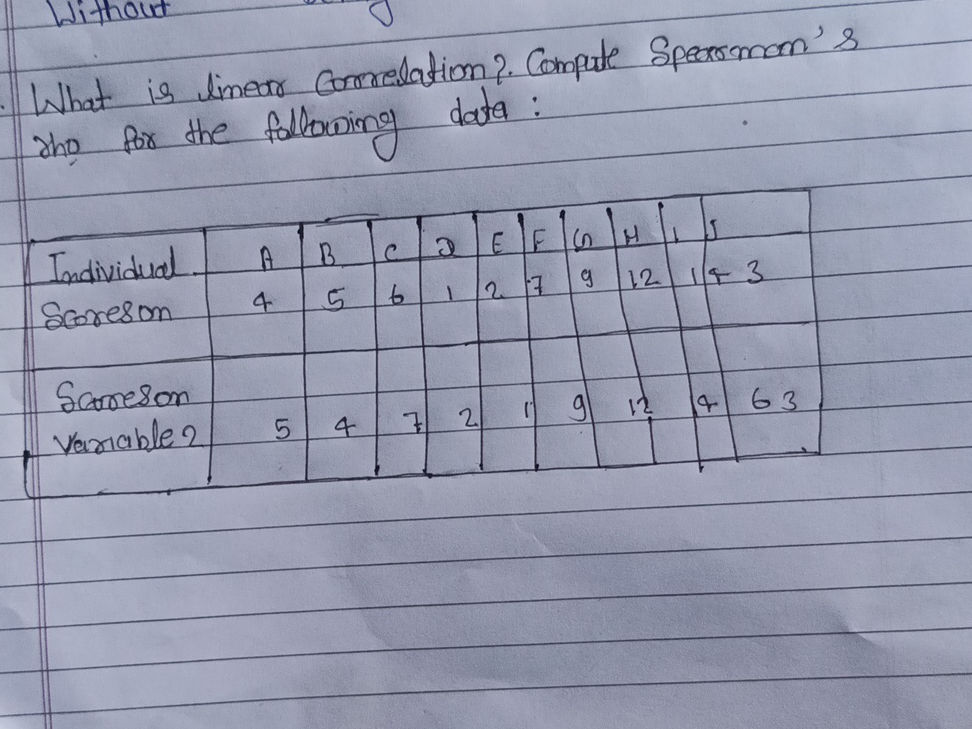 Without
What is linear Correlation?. Compute Spearsmom's
rho for the following data:
Individual A B C D E F G H I J
Scoreson 4 5 6 1 2 7 9 12 14 3
Scoreson
Variable 2 5 4 7 2 1 9 12 4 6 3